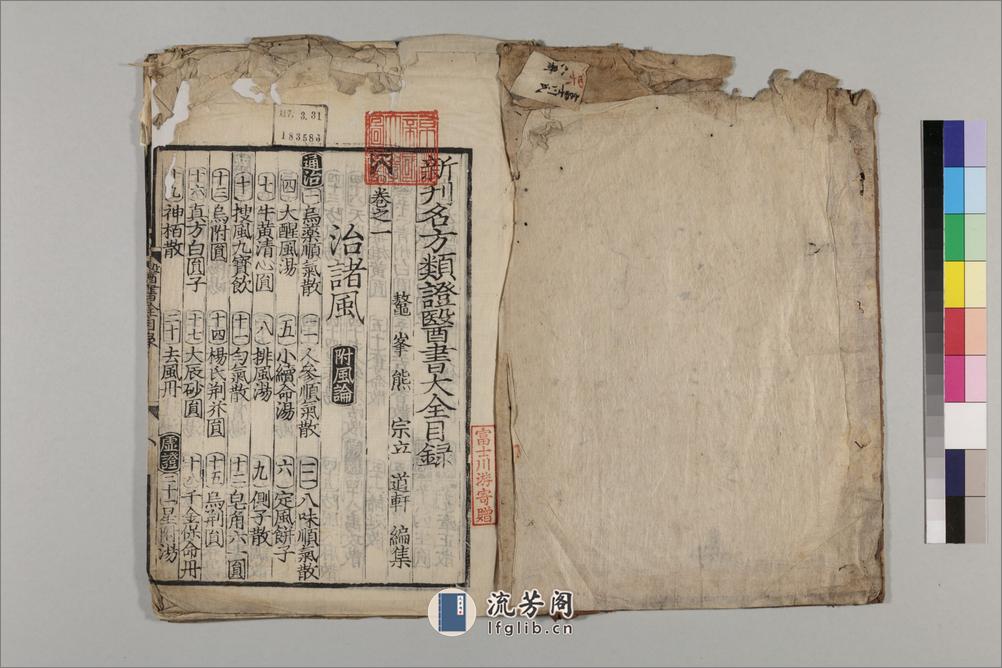 新刊名方類證醫書大全目録
鼇峯熊宗立道軒編集
卷之一
治諸風 附風論
通治 一 烏藥順氣散 二 人參順氣散 三 八味順氣散
四 大醒風湯 五 小續命湯 六 定風餅子
七 牛黃清心圓 八 排風湯 九 側子散
十 搜風九寶飲 十一 勻氣散 十二 皂角六一圓
十三 烏附圓 十四 楊氏荆芥圓 十五 烏荆圓
十六 真方白圓子 十七 大辰砂圓 十八 千金保命丹
十九 神柏散 二十 去風丹 虛證 二十一 星附湯
富士川游寄贈
3.31
183583
流芳阁
lfglib.cn